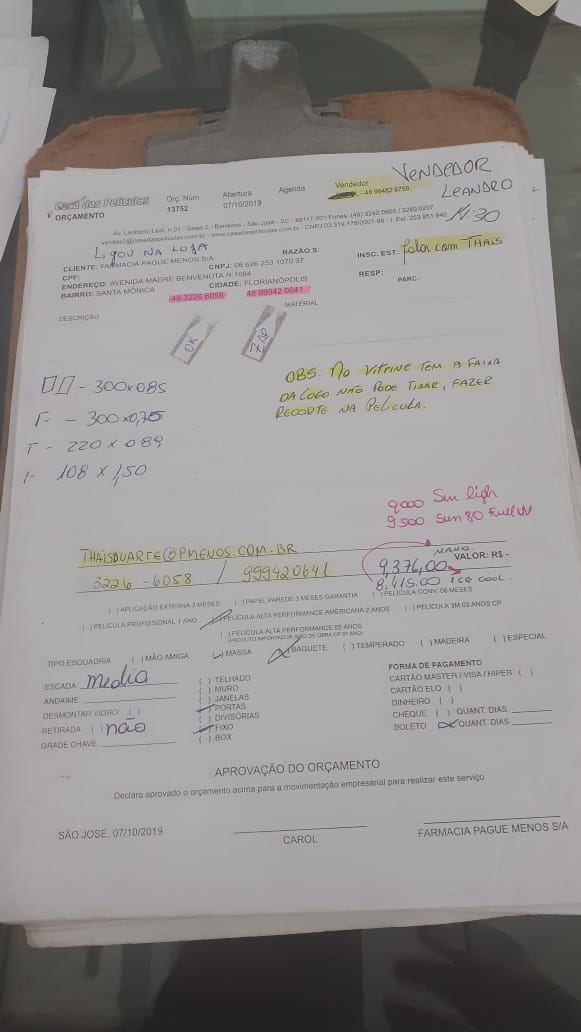 Casa das Películas
ORÇAMENTO
Orç. Num
13752
Abertura
07/10/2019
Agenda
Vendedor
- 48 98482 8758
VENDEDOR
LEANDRO
14:30
Av. Leoberto Leal, n.01 - Salas 2 - Barreiros - São José - SC - 88117-001 Fones: (48) 3240.0605 / 3240.0207
vendas2@casadaspeliculas.com.br - www.casadaspeliculas.com.br - CNPJ 03.319.176/0001-98 - I. Est. 253.951.640
LIGOU NA LOJA
RAZÃO S:
INSC. EST:
fala com THAIS
CLIENTE: FARMACIA PAGUE MENOS S/A
CPF:
CNPJ: 06 626 253 1070 37
RESP:
ENDEREÇO: AVENIDA MADRE BENVENUTA N:1084
PARC:
BAIRRO: SANTA MÔNICA
CIDADE: FLORIANÓPOLIS
48 3226 6058
48 99942 0641
DESCRIÇÃO
MATERIAL
OK
ZAP
OBS: NA VITRINE TEM A FAIXA
DA LOGO NÃO PODE TIRAR, FAZER
RECORTE NA PELÍCULA.
- 300x085
- 300x0,75
- 220 x 089
108 x 1,50
9000 Sun ligh
9500 Sun 80 Full UV
THAISDUARTE@PMENOS.COM.BR
3226-6058 / 999420641
NANO
9,376,00
VALOR: R$ -
8.415.00 ICE COOL.
( ) APLICAÇÃO EXTERNA 3 MESES ( ) PAPEL PAREDE 3 MESES GARANTIA ( ) PELÍCULA CONV. 06 MESES
( ) PELÍCULA PROFISSIONAL 1 ANO PELÍCULA ALTA PERFORMANCE AMERICANA 2 ANOS ( ) PELÍCULA 3M 03 ANOS CP
( ) PELÍCULA ALTA PERFORMANCE 05 ANOS
TIPO ESQUADRIA ( ) MÃO AMIGA ( ) MASSA BAGUETE ( ) TEMPERADO ( ) MADEIRA ( ) ESPECIAL
ESCADA: média
ANDAIME:
DESMONTAR VIDRO: ( )
RETIRADA ( ) não
GRADE CHAVE:
( ) TELHADO
( ) MURO
( ) JANELAS
PORTAS
( ) DIVISÓRIAS
FIXO
( ) BOX
FORMA DE PAGAMENTO
CARTÃO MASTER / VISA / HIPER ( )
CARTÃO ELO ( )
DINHEIRO ( )
CHEQUE ( ) QUANT. DIAS:
BOLETO QUANT. DIAS
APROVAÇÃO DO ORÇAMENTO
Declaro aprovado o orçamento acima para a movimentação empresarial para realizar este serviço
SÃO JOSÉ, 07/10/2019
CAROL
FARMACIA PAGUE MENOS S/A